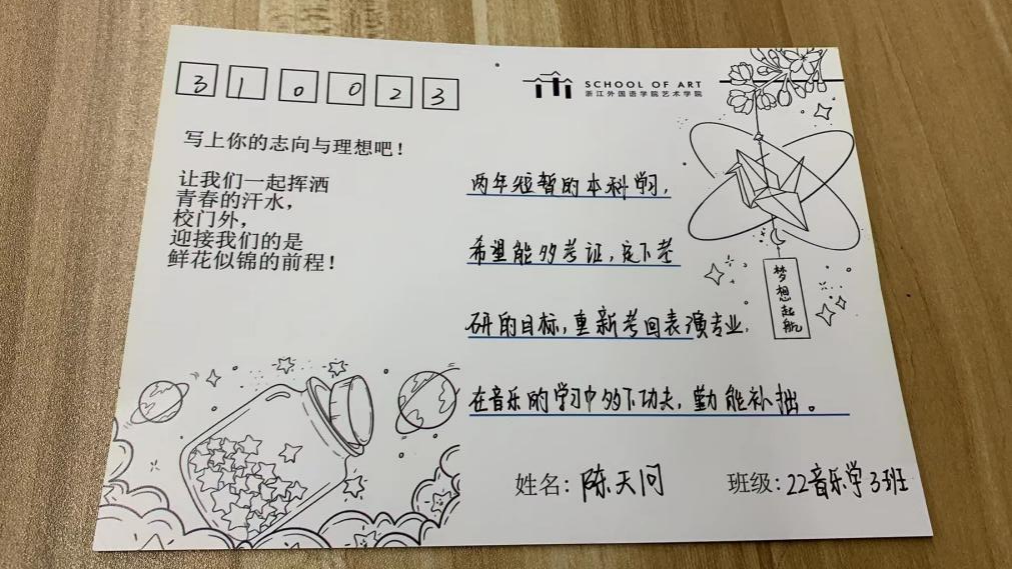 310023
SCHOOL OF ART
浙江外国语学院艺术学院
写上你的志向与理想吧！
让我们一起挥洒
青春的汗水，
校门外，
迎接我们的是
鲜花似锦的前程！
两年短暂的本科学习，
希望能够考证，定下考
研的目标，重新考回表演专业，
在音乐的学习中多下功夫，勤能补拙。
梦想起航
姓名：陈天问
班级：22音乐学3班